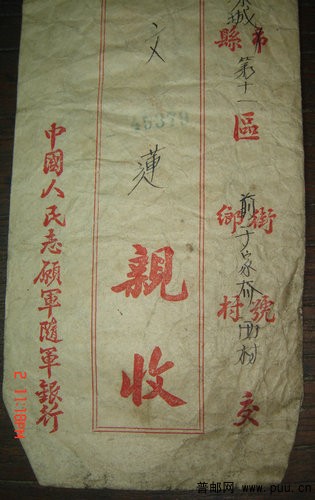 市縣
城第十一區
鄉街
村號
前于家西村
交
文蓮親收
中國人民志願軍隨軍銀行
普邮网 www.puu.cn